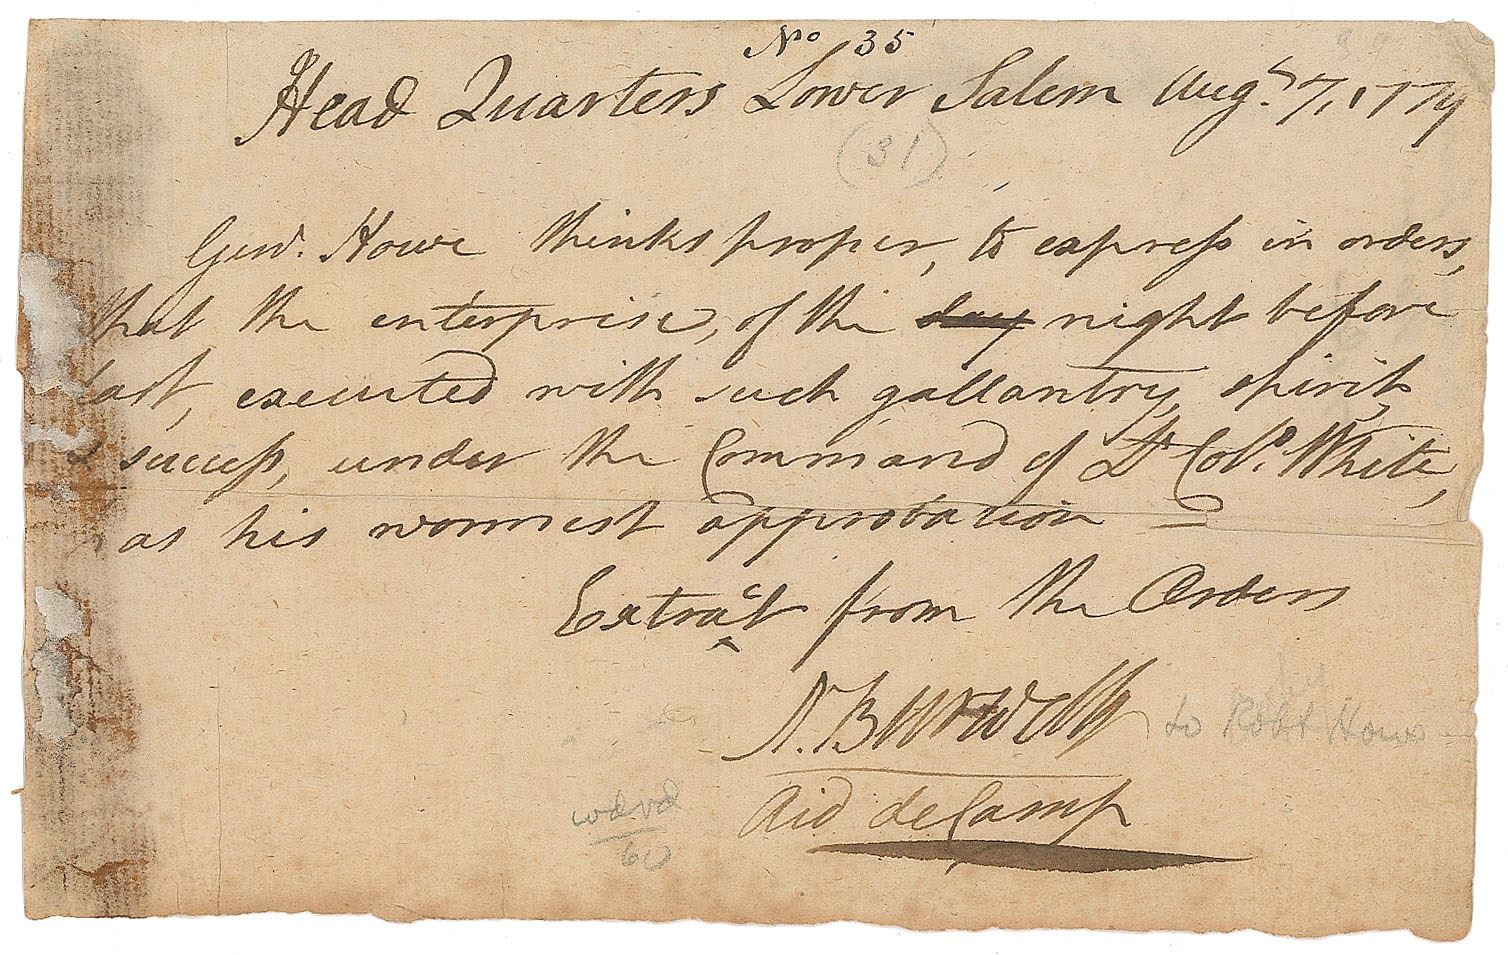 No 35
Head Quarters Lower Salem Augt. 7, 1779
(31)
Genl. Howe thinks proper, to express in orders,
that the enterprise, of the day night before
last, executed with such gallantry, spirit,
& success, under the Command of Lt Colo. White,
has his warmest approbation =
Extract from the Orders
N. Burwell
to Robt Howe
Aid de Camp
60